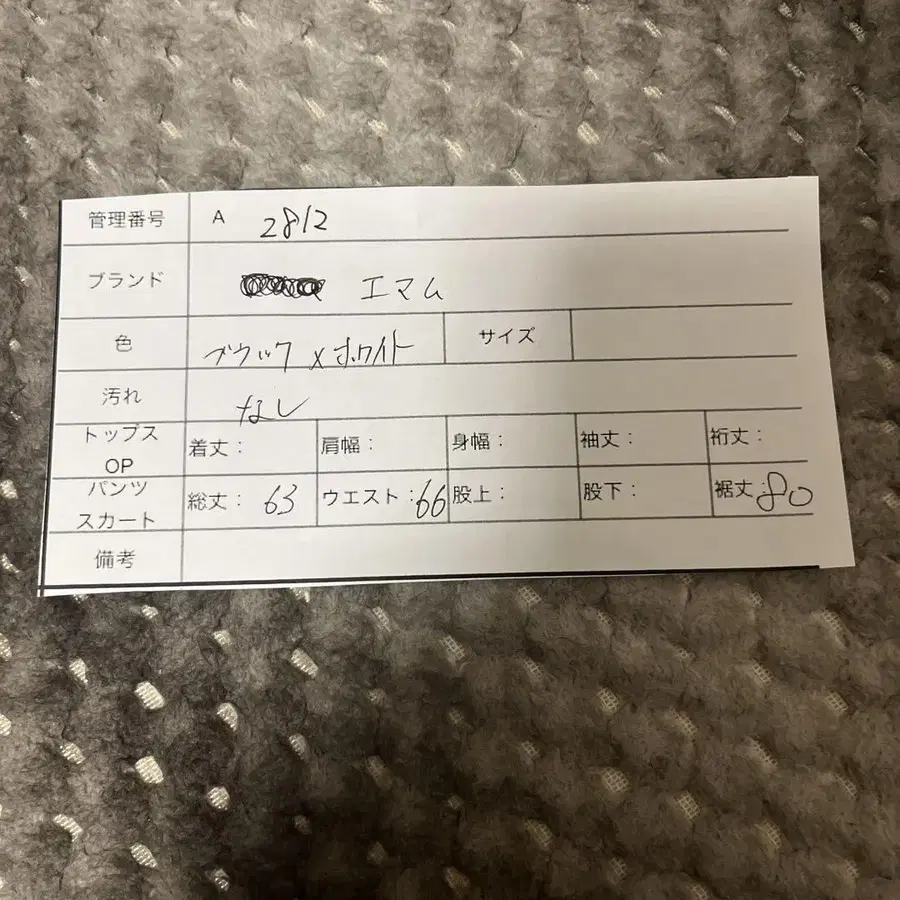 管理番号 A 2812
ブランド エマム
色 ブラック×ホワイト サイズ
汚れ なし
トップス OP 着丈: 肩幅: 身幅: 袖丈: 裄丈:
パンツ スカート 総丈: 63 ウエスト: 66 股上: 股下: 裾丈: 80
備考